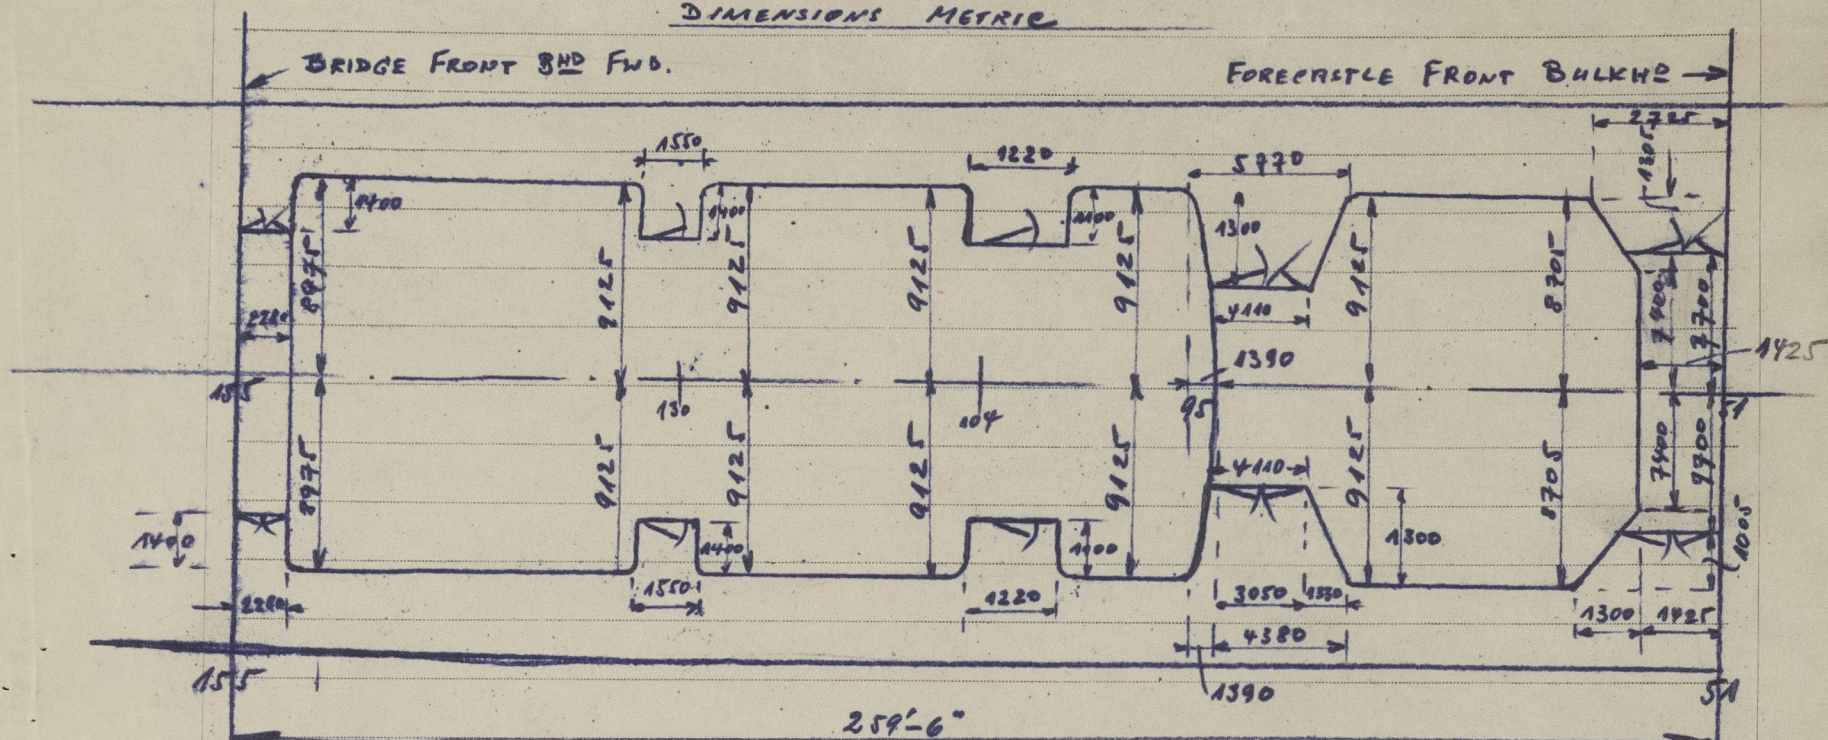 DIMENSIONS METRIC
BRIDGE FRONT BHD FWD.
FORECASTLE FRONT BULKHD
2725
1305
1550
1220
5770
1400
1400
1400
1300
8975
9125
9125
9125
9125
9125
8705
7400
7700
2280
4110
1390
1425
155
130
104
95
51
8975
9125
9125
9125
9125
4110
9125
8705
7400
1400
1400
1300
1005
2280
1550
1220
3050
1330
1300
1425
4380
155
1390
51
259'-6"